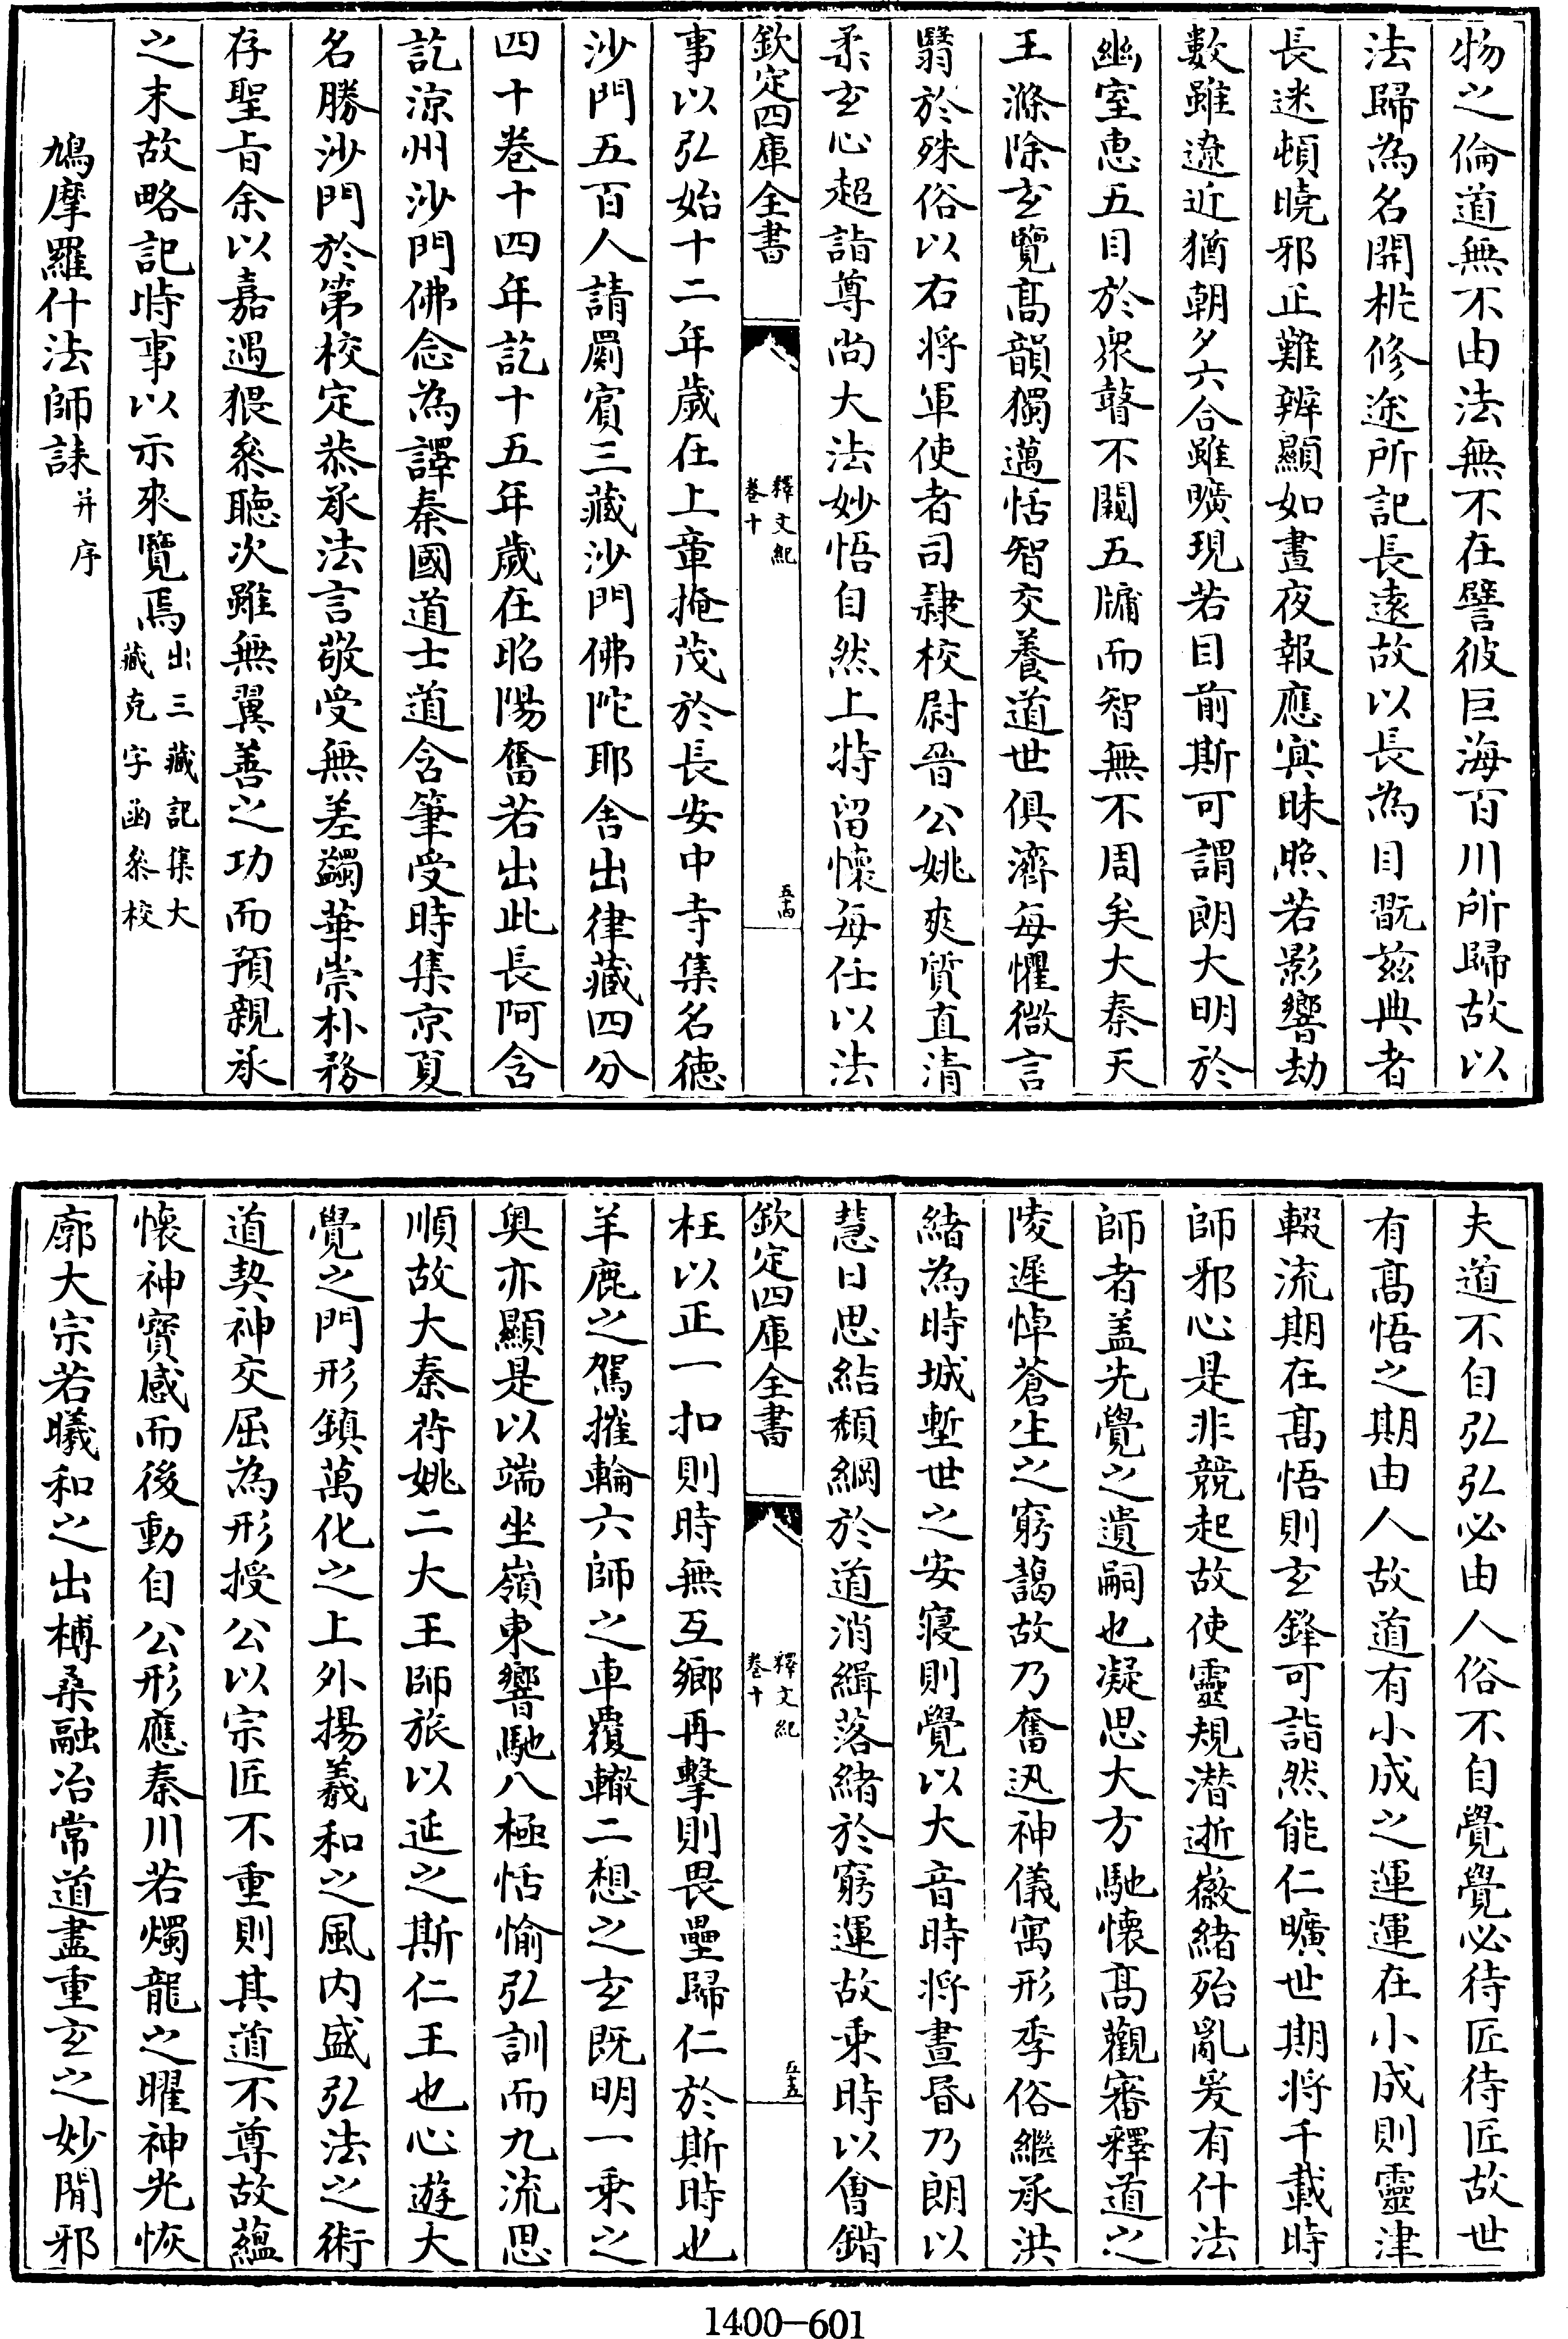 物之倫道無不由法無不在譬彼巨海百川所歸故以
法歸為名開桄修途所記長遠故以長為目翫兹典者
長迷頓曉邪正難辨顯如晝夜報應冥昧照若影響劫
數雖遼近猶朝夕六合雖曠現若目前斯可謂朗大明於
幽室惠五目於衆瞽不闚五牖而智無不周矣大秦天
王滌除玄覽髙韻獨邁恬智交養道世俱濟每懼微言
翳於殊俗以右将軍使者司隷校尉晉公姚爽質直清
柔玄心超詣尊尚大法妙悟自然上特留懷每任以法
欽定四庫全書
釋文紀
卷十
五十四
事以弘始十二年歲在上章掩茂於長安中寺集名德
沙門五百人請罽賓三藏沙門佛陀耶舍出律藏四分
四十卷十四年訖十五年歲在昭陽奮若出此長阿含
訖涼州沙門佛念為譯秦國道士道含筆受時集京夏
名勝沙門於第校定恭承法言敬受無差蠲華崇朴務
存聖旨余以嘉遇猥叅聽次雖無翼善之功而預親承
之末故略記時事以示來覽焉
出三藏記集大
藏克字函叅校
鳩摩羅什法師誄并序
夫道不自弘弘必由人俗不自覺覺必待匠待匠故世
有髙悟之期由人故道有小成之運運在小成則靈津
輟流期在髙悟則玄鋒可詣然能仁曠世期将千載時
師邪心是非競起故使靈規潜逝徽緒殆亂爰有什法
師者盖先覺之遺嗣也凝思大方馳懷髙觀審釋道之
陵遲悼蒼生之窮藹故乃奮迅神儀寓形季俗繼承洪
緒為時城塹世之安寢則覺以大音時将晝昏乃朗以
慧日思結頽綱於道消緝落緒於窮運故乘時以會錯
欽定四庫全書
釋文紀
卷十
五十五
枉以正一扣則時無互鄉再擊則畏壘歸仁於斯時也
羊鹿之駕摧輪六師之車覆轍二想之玄既明一乘之
奥亦顯是以端坐嶺東響馳八極恬愉弘訓而九流思
順故大秦苻姚二大王師旅以延之斯仁王也心遊大
覺之門形鎮萬化之上外揚羲和之風内盛弘法之術
道契神交屈為形授公以宗匠不重則其道不尊故蘊
懷神寶感而後動自公形應秦川若燭龍之曜神光恢
廓大宗若曦和之出榑桑融冶常道盡重玄之妙閑邪
1400-601